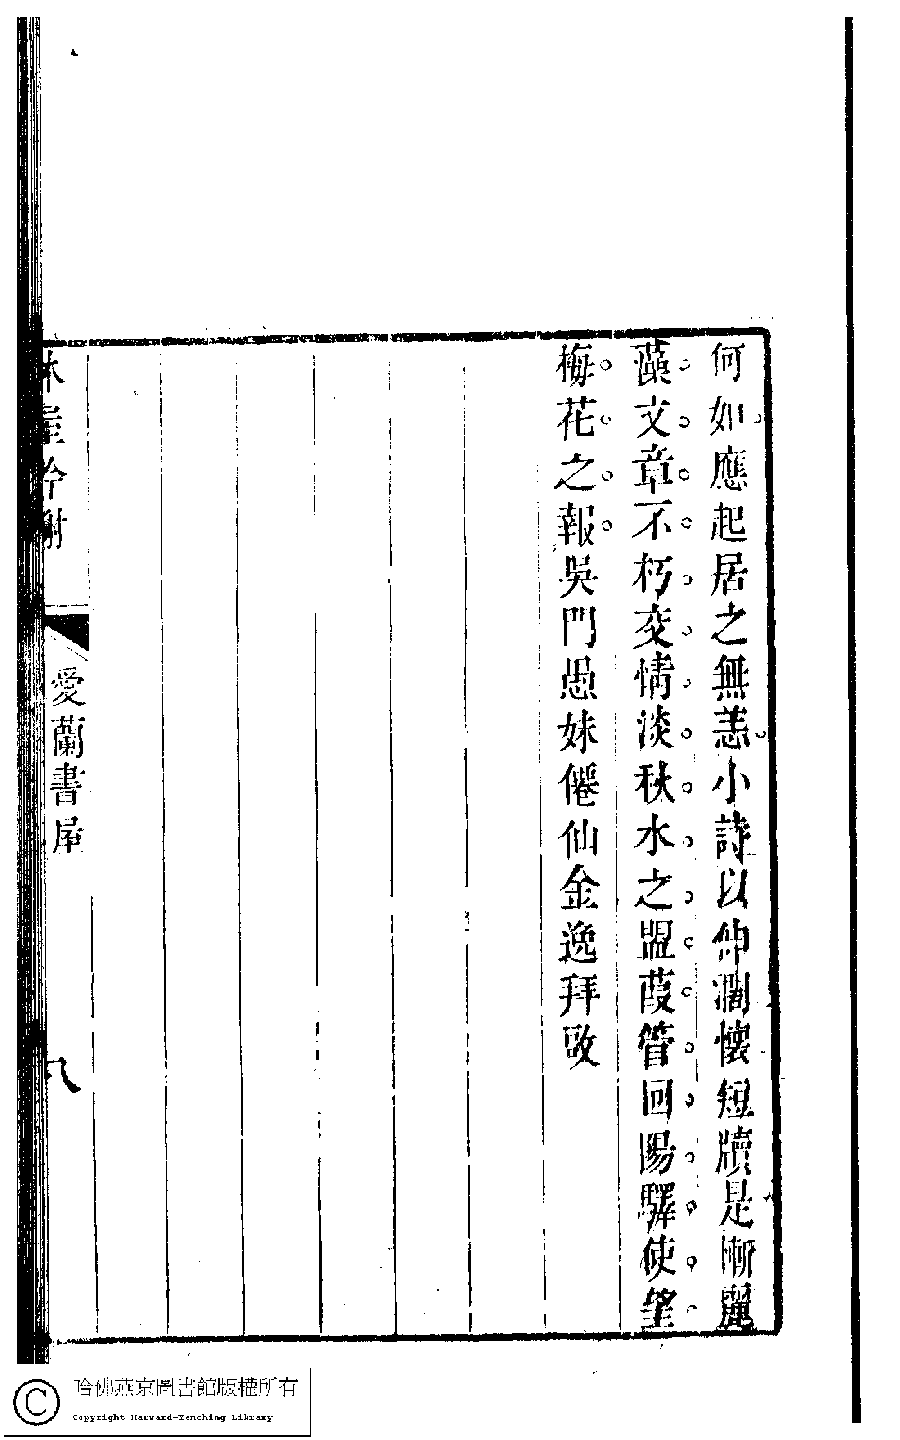 何如應起居之無恙小詩以伸濶懷短牘是慚麗
藻文章不朽交情淡秋水之盟葭管回陽驛使望
梅花之報吳門愚妹僊仙金逸拜啟
林屋吟榭
愛蘭書屋
八
哈佛燕京圖書館版權所有
Copyright Harvard-Yenching Library